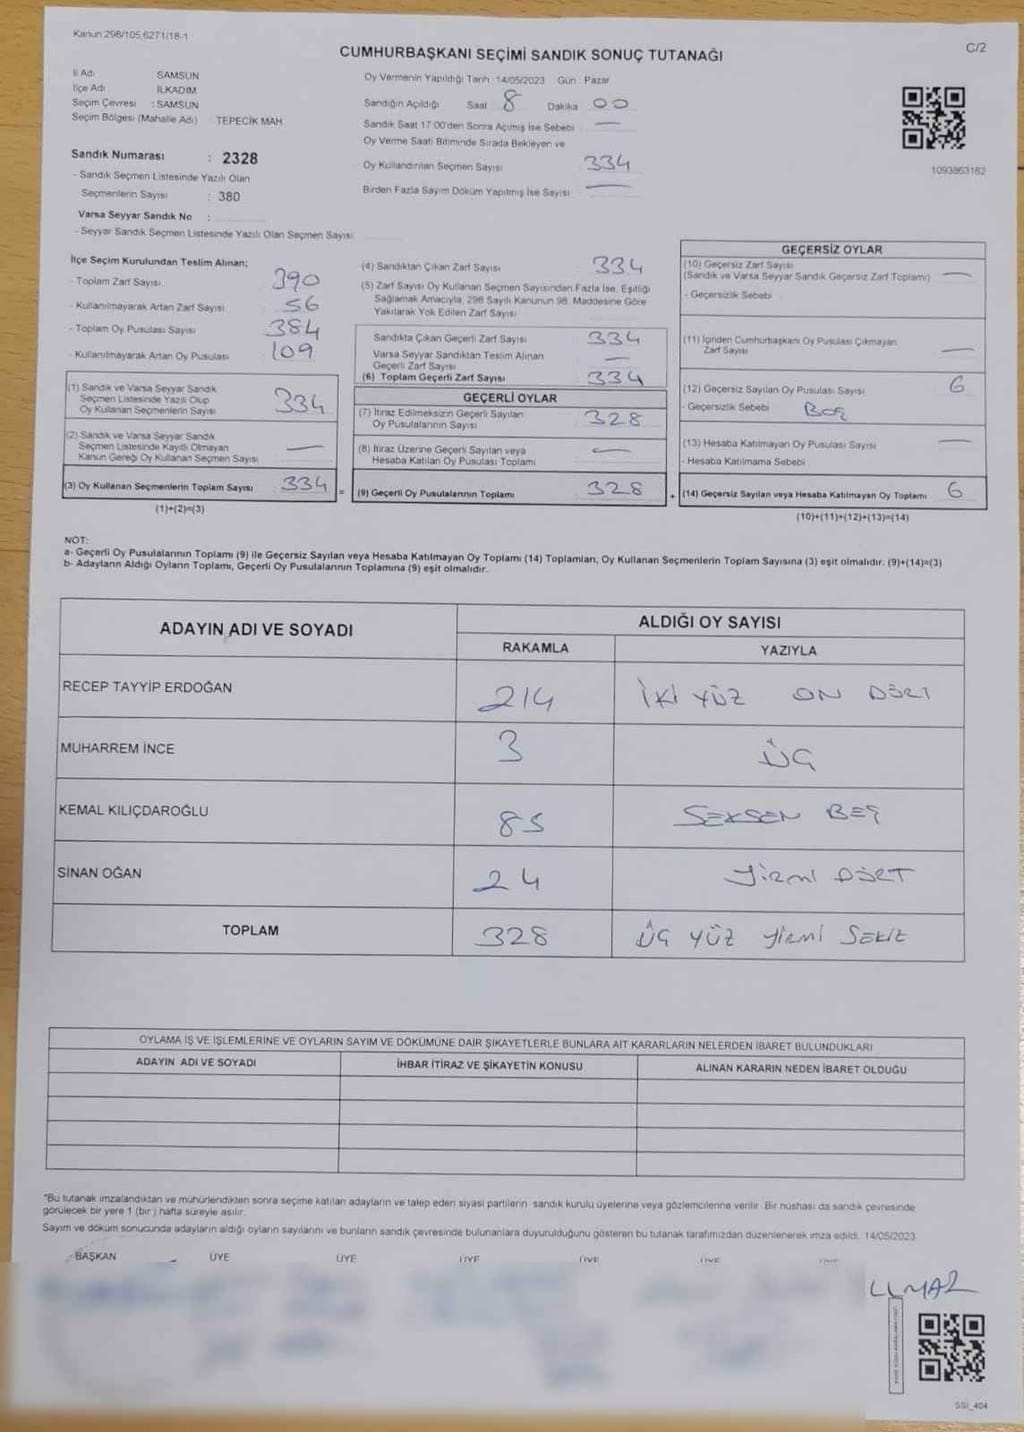 Kanun 298/105,6271/18-1
C/2
CUMHURBAŞKANI SEÇİMİ SANDIK SONUÇ TUTANAĞI
İl Adı SAMSUN
İlçe Adı İLKADIM
Seçim Çevresi : SAMSUN
Seçim Bölgesi (Mahalle Adı) TEPECİK MAH
Sandık Numarası : 2328
- Sandık Seçmen Listesinde Yazılı Olan
Seçmenlerin Sayısı : 380
Varsa Seyyar Sandık No :
- Seyyar Sandık Seçmen Listesinde Yazılı Olan Seçmen Sayısı
Oy Vermenin Yapıldığı Tarih 14/05/2023 Gün : Pazar
Sandığın Açıldığı Saat 8 Dakika 00
Sandık Saat 17:00'den Sonra Açılmış İse Sebebi —
Oy Verme Saati Bitiminde Sırada Bekleyen ve
Oy Kullandırılan Seçmen Sayısı 334
Birden Fazla Sayım Döküm Yapılmış İse Sayısı —
1093863162
İlçe Seçim Kurulundan Teslim Alınan;
- Toplam Zarf Sayısı 390
- Kullanılmayarak Artan Zarf Sayısı 56
- Toplam Oy Pusulası Sayısı 384
- Kullanılmayarak Artan Oy Pusulası 109
(1) Sandık ve Varsa Seyyar Sandık
Seçmen Listesinde Yazılı Olup
Oy Kullanan Seçmenlerin Sayısı 334
(2) Sandık ve Varsa Seyyar Sandık
Seçmen Listesinde Kayıtlı Olmayan
Kanun Gereği Oy Kullanan Seçmen Sayısı —
(3) Oy Kullanan Seçmenlerin Toplam Sayısı 334 =
(1)+(2)=(3)
(4) Sandıktan Çıkan Zarf Sayısı 334
(5) Zarf Sayısı Oy Kullanan Seçmen Sayısından Fazla İse, Eşitliği
Sağlamak Amacıyla, 298 Sayılı Kanunun 98. Maddesine Göre
Yakılarak Yok Edilen Zarf Sayısı
Sandıkta Çıkan Geçerli Zarf Sayısı 334
Varsa Seyyar Sandıktan Teslim Alınan
Geçerli Zarf Sayısı —
(6) Toplam Geçerli Zarf Sayısı 334
GEÇERLİ OYLAR
(7) İtiraz Edilmeksizin Geçerli Sayılan
Oy Pusulalarının Sayısı 328
(8) İtiraz Üzerine Geçerli Sayılan veya
Hesaba Katılan Oy Pusulası Toplamı —
(9) Geçerli Oy Pusulalarının Toplamı 328 +
GEÇERSİZ OYLAR
(10) Geçersiz Zarf Sayısı
(Sandık ve Varsa Seyyar Sandık Geçersiz Zarf Toplamı) —
- Geçersizlik Sebebi
(11) İçinden Cumhurbaşkanı Oy Pusulası Çıkmayan
Zarf Sayısı —
(12) Geçersiz Sayılan Oy Pusulası Sayısı 6
- Geçersizlik Sebebi BOŞ
(13) Hesaba Katılmayan Oy Pusulası Sayısı —
- Hesaba Katılmama Sebebi
(14) Geçersiz Sayılan veya Hesaba Katılmayan Oy Toplamı 6
(10)+(11)+(12)+(13)=(14)
NOT:
a- Geçerli Oy Pusulalarının Toplamı (9) ile Geçersiz Sayılan veya Hesaba Katılmayan Oy Toplamı (14) Toplamları, Oy Kullanan Seçmenlerin Toplam Sayısına (3) eşit olmalıdır. (9)+(14)=(3)
b- Adayların Aldığı Oyların Toplamı, Geçerli Oy Pusulalarının Toplamına (9) eşit olmalıdır.
ADAYIN ADI VE SOYADI
ALDIĞI OY SAYISI
RAKAMLA YAZIYLA
RECEP TAYYİP ERDOĞAN 214 İKİ YÜZ ON DÖRT
MUHARREM İNCE 3 ÜÇ
KEMAL KILIÇDAROĞLU 85 SEKSEN BEŞ
SİNAN OĞAN 24 YİRMİ DÖRT
TOPLAM 328 ÜÇ YÜZ YİRMİ SEKİZ
OYLAMA İŞ VE İŞLEMLERİNE VE OYLARIN SAYIM VE DÖKÜMÜNE DAİR ŞİKAYETLERLE BUNLARA AİT KARARLARIN NELERDEN İBARET BULUNDUKLARI
ADAYIN ADI VE SOYADI İHBAR İTİRAZ VE ŞİKAYETİN KONUSU ALINAN KARARIN NEDEN İBARET OLDUĞU
*Bu tutanak imzalandıktan ve mühürlendikten sonra seçime katılan adayların ve talep eden siyasi partilerin sandık kurulu üyelerine veya gözlemcilerine verilir. Bir nüshası da sandık çevresinde
görülecek bir yere 1 (bir) hafta süreyle asılır.
Sayım ve döküm sonucunda adayların aldığı oyların sayılarını ve bunların sandık çevresinde bulunanlara duyurulduğunu gösteren bu tutanak tarafımızdan düzenlenerek imza edildi. 14/05/2023
BAŞKAN ÜYE ÜYE ÜYE ÜYE ÜYE ÜYE
SSİ_404